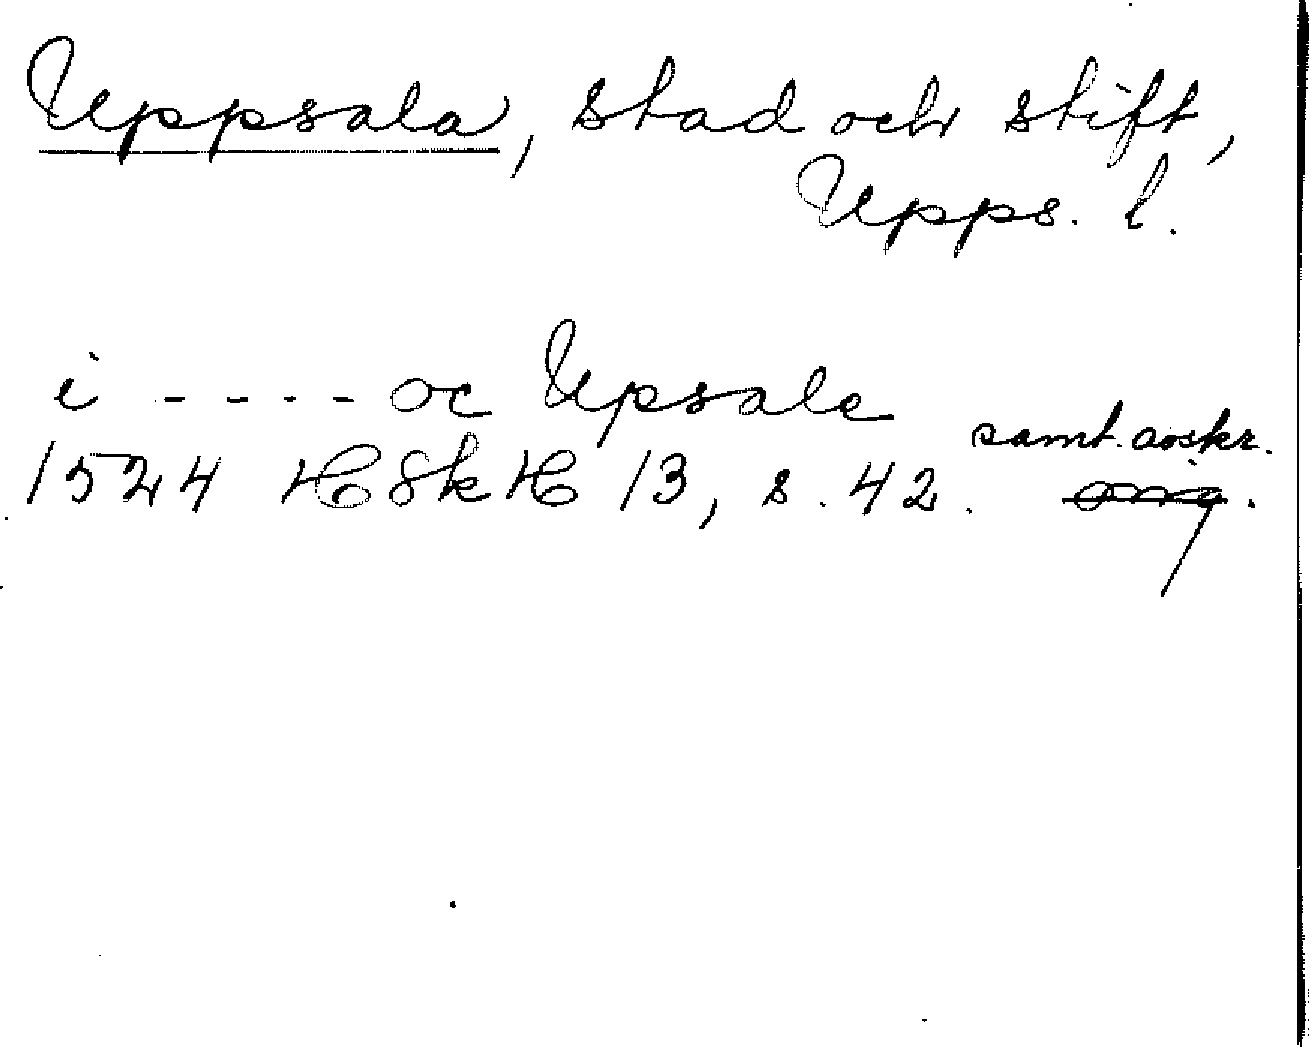 Uppsala, stad och stift,
Upps. l.
i - - - - oc Upsale
samt. avskr.
1524 HSkH 13, s. 42. orig.